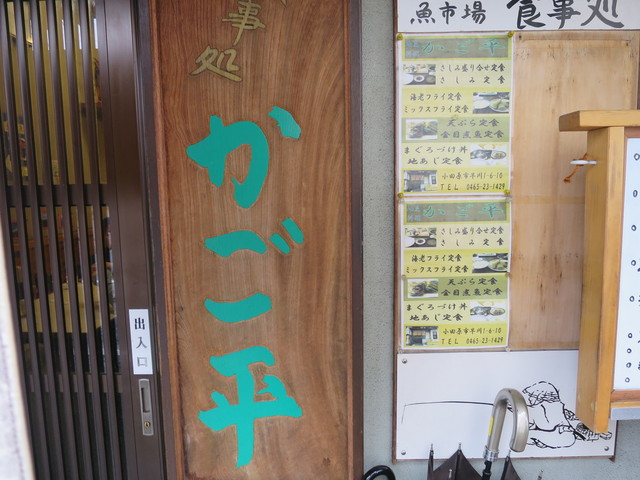 事処
かご平
出入口
魚市場 食事処
かご平
さしみ盛り合せ定食
さしみ定食
海老フライ定食
ミックスフライ定食
天ぷら定食
金目煮魚定食
まぐろづけ丼
地あじ定食
小田原市早川1-6-10
TEL 0465-23-1429
かご平
さしみ盛り合せ定食
さしみ定食
海老フライ定食
ミックスフライ定食
天ぷら定食
金目煮魚定食
まぐろづけ丼
地あじ定食
小田原市早川1-6-10
TEL 0465-23-1429